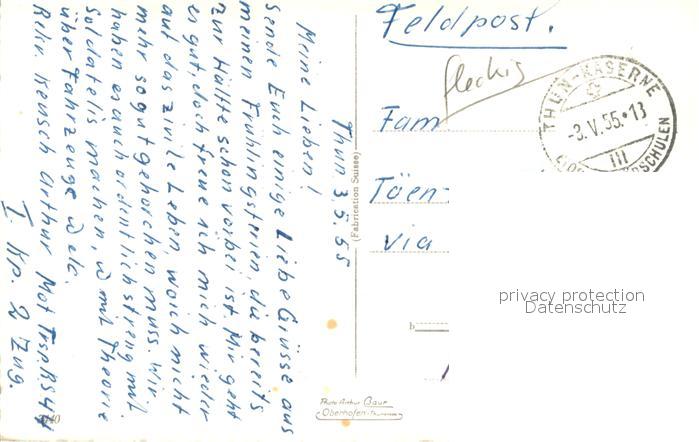 Thun 3.5.55
Meine Lieben!
Sende Euch einige liebe Grüsse aus
meinen Frühlingsferien, die bereits
zur Hälfte schon vorbei ist. Mir geht
es gut, doch freue ich mich wieder
auf das zivile Leben, wo ich nicht
mehr so gut gehorchen muss. Wir
haben es auch ordentlich streng mit
Soldatelis machen, u mit Theorie
über Fahrzeuge u etc.
Rekr. Arthur Mot Trsp. RS
I. Kp. 2 Zug
2140
(Fabrication Suisse)
Photo Arthur Baur
Oberhofen-Thunersee
Feldpost.
fleckig
Fam
Täen
via
THUN-KASERNE
-3.V.55.-13
III
privacy protection
Datenschutz